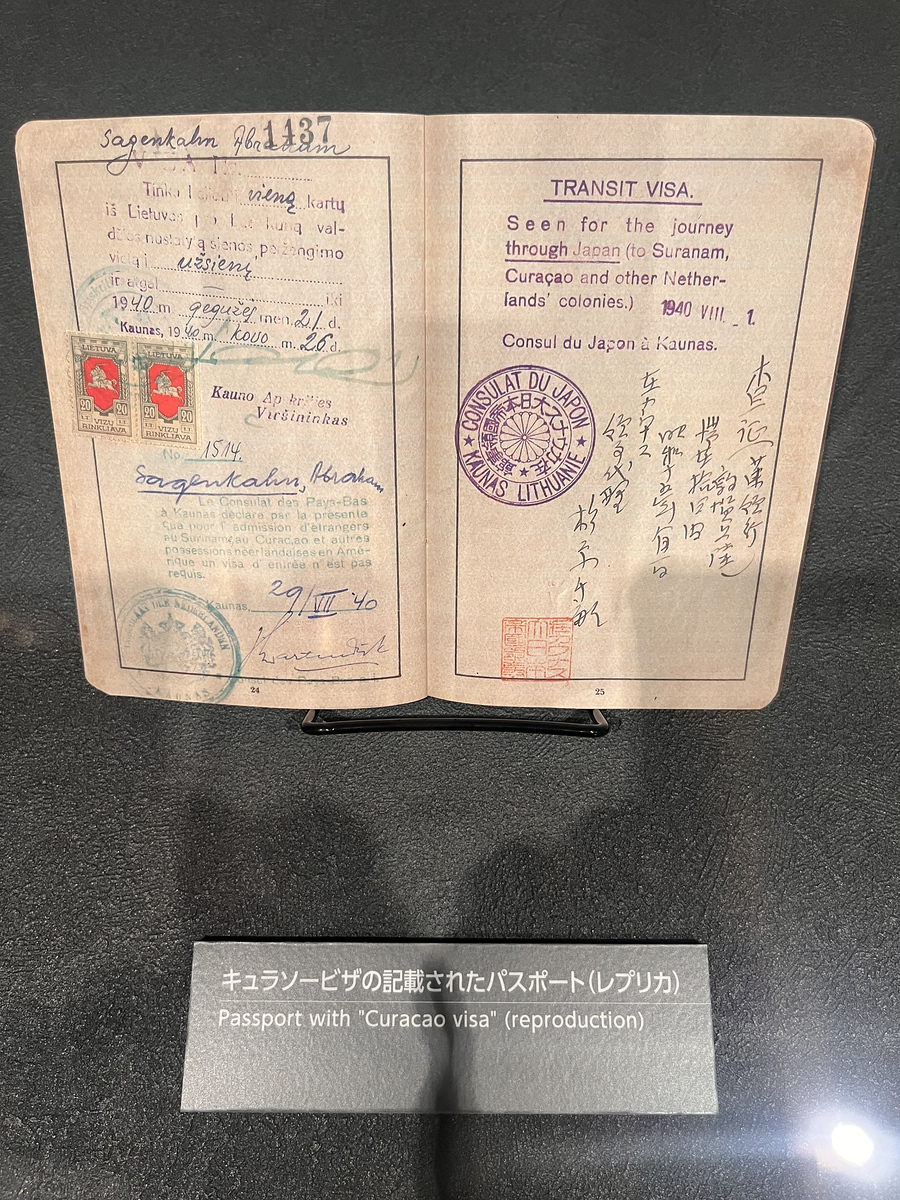 Sagenkahn Abraham
1437
vieną kartų
iš Lietuvos val-
džios nustatytą sienos peržengimo
vietą į užsienį
ir atgal iki
1940 m. gegužės mėn. 21 d.
Kaunas, 1940 m. kovo m. 26 d.
LIETUVA
20 20
LT LT
VIZŲ
RINKLIAVA
LIETUVA
20 20
LT LT
VIZŲ
RINKLIAVA
Kauno Apskrities
Viršininkas
No. 1514.
Sagenkahn, Abraham
Le Consulat des Pays-Bas
à Kaunas déclare par la présente
que pour l'admission d'étrangers
au Surinam, au Curaçao et autres
possessions néerlandaises en Amé-
rique un visa d'entrée n'est pas
requis.
Kaunas, 29/VII '40
DER NEDERLANDEN
KAUNAS
24
TRANSIT VISA.
Seen for the journey
through Japan (to Suranam,
Curaçao and other Nether-
lands' colonies.) 1940 VIII. 1.
Consul du Japon à Kaunas.
CONSULAT DU JAPON
KAUNAS LITHUANIE
在カウナス大日本帝國領事館
敦賀上陸
昭和十五年八月一日
在カウナス
領事代理
杉原千畝
25
キュラソービザの記載されたパスポート(レプリカ)
Passport with "Curacao visa" (reproduction)